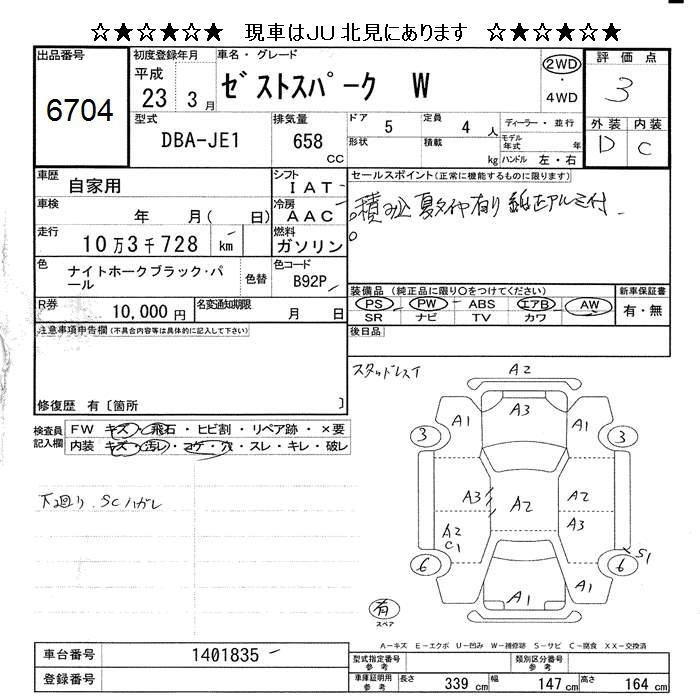 ☆★☆★☆★ 現車はJU北見にあります ☆★☆★☆★
出品番号
6704
初度登録年月
平成
23 3 月
車名・グレード
ゼストスパーク W
2WD
・
4WD
評価点
3
外装 内装
D C
型式
DBA-JE1
排気量
658
CC
ドア 5
定員 4 人
形状
積載 kg
ディーラー・並行
モデル年式 年
ハンドル 左・右
車歴
自家用
シフト
IAT
車検
年 月( 日)
冷房
AAC
走行
10万3千728 km
燃料
ガソリン
色
ナイトホークブラック・パール
色替
色コード
B92P
R券
10,000円
名変通知期限
月 日
セールスポイント(正常に機能するものに限ります)
積み込 夏タイヤ有り 純正アルミ付
装備品(純正品に限り○をつけてください)
PS PW ABS エアB AW
SR ナビ TV カワ
新車保証書
有・無
後日品
注意事項申告欄(不具合内容等は具体的に記入して下さい)
修復歴 有〔箇所 〕
検査員記入欄
FW キズ・飛石・ヒビ割・リペア跡・×要
内装 キズ・汚レ・コゲ・穴・スレ・キレ・破レ
下廻り、SCハガレ
スタッドレスT
A2
A1 A3 A1
3 3
A3 A2 A2
A2 A3
C1
S1
6 6
A1 A1 A1
有
スペア
A-キズ E-エクボ U-凹み W-補修跡 S-サビ C-腐食 XX-交換済
車台番号
1401835
登録番号
型式指定番号
参考
類別区分番号
参考
車庫証明用
参考
長さ 339 cm
幅 147 cm
高さ 164 cm